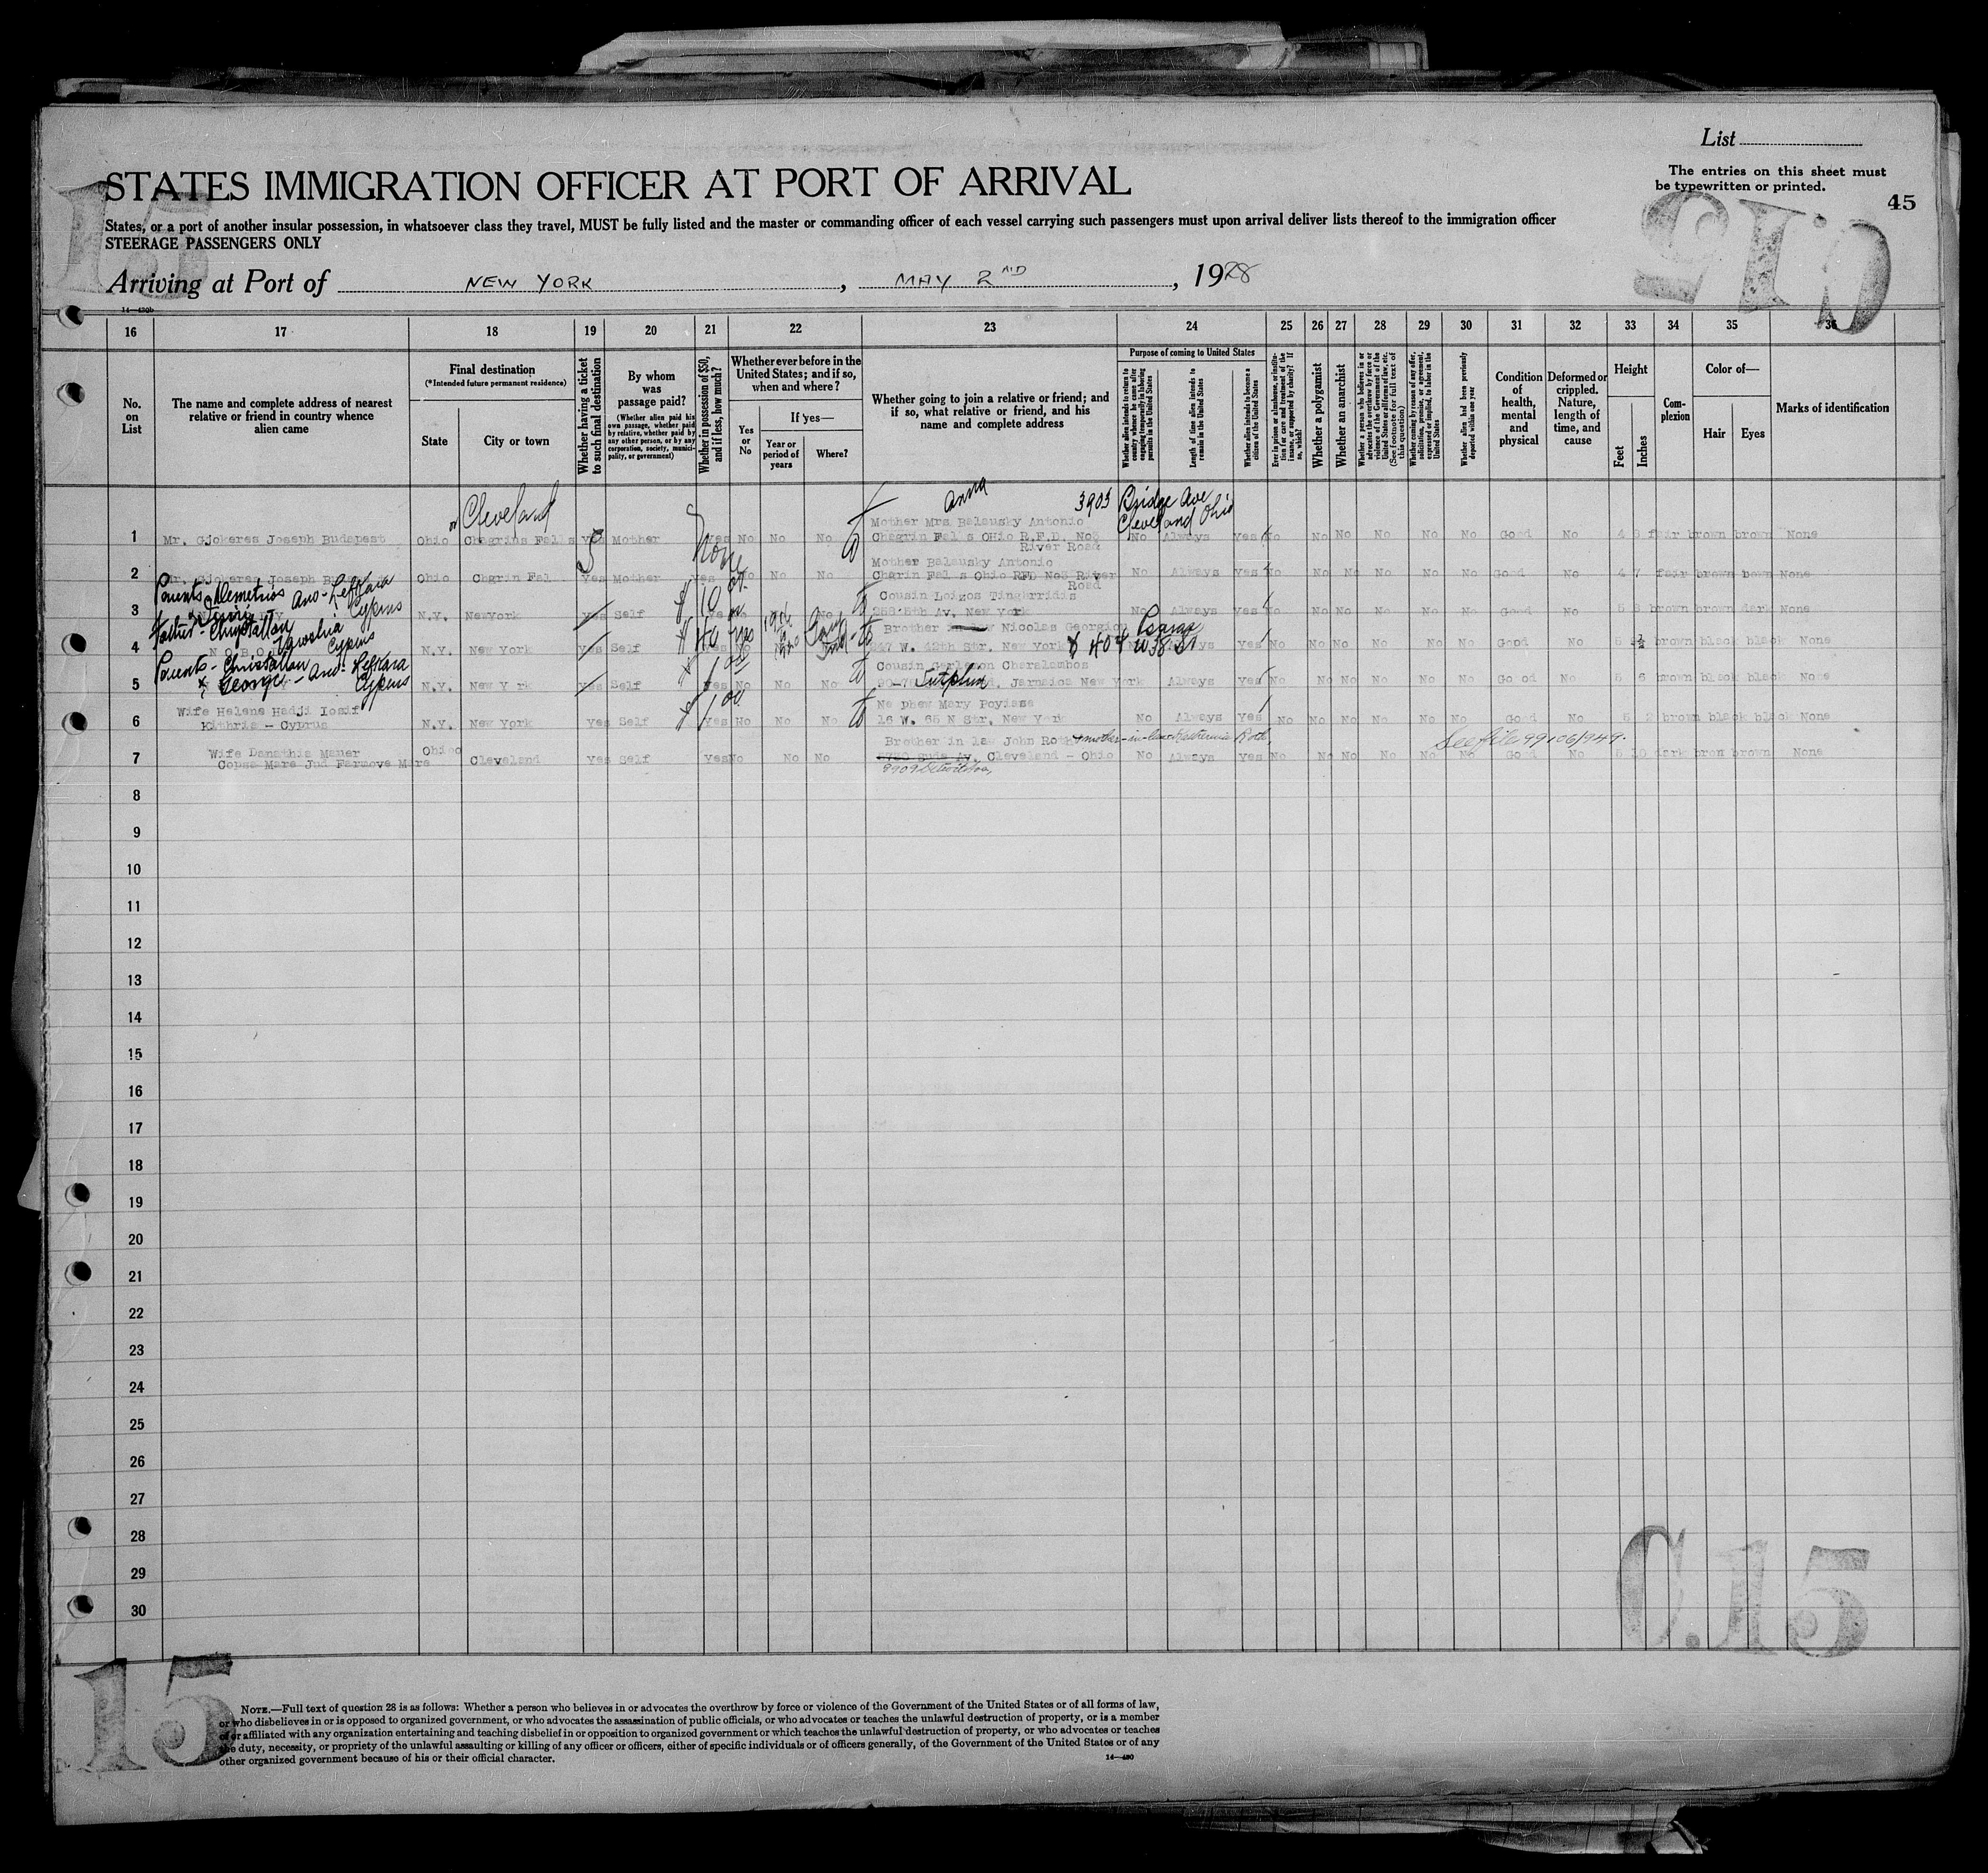 List
The entries on this sheet must
be typewritten or printed.
45
15
C.15
STATES IMMIGRATION OFFICER AT PORT OF ARRIVAL
States, or a port of another insular possession, in whatsoever class they travel, MUST be fully listed and the master or commanding officer of each vessel carrying such passengers must upon arrival deliver lists thereof to the immigration officer
STEERAGE PASSENGERS ONLY
Arriving at Port of NEW YORK, MAY 2ND, 1928
14—430b
16 17 18 19 20 21 22 23 24 25 26 27 28 29 30 31 32 33 34 35 36
No. on List
The name and complete address of nearest relative or friend in country whence alien came
Final destination
(*Intended future permanent residence)
State
City or town
Whether having a ticket to such final destination
By whom was passage paid?
(Whether alien paid his own passage, whether paid by relative, whether paid by any other person, or by any corporation, society, municipality, or government)
Whether in possession of $50, and if less, how much?
Whether ever before in the United States; and if so, when and where?
Yes or No
If yes—
Year or period of years
Where?
Whether going to join a relative or friend; and if so, what relative or friend, and his name and complete address
Purpose of coming to United States
Whether alien intends to return to country whence he came after engaging temporarily in laboring pursuits in the United States
Length of time alien intends to remain in the United States
Whether alien intends to become a citizen of the United States
Ever in prison or almshouse, or institution for care and treatment of the insane, or supported by charity? If so, which?
Whether a polygamist
Whether an anarchist
Whether a person who believes in or advocates the overthrow by force or violence of the Government of the United States or all forms of law, etc. (See footnote for full text of this question)
Whether coming by reason of any offer, solicitation, promise, or agreement, expressed or implied, to labor in the United States
Whether alien had been previously deported within one year
Condition of health, mental and physical
Deformed or crippled. Nature, length of time, and cause
Height
Feet
Inches
Complexion
Color of—
Hair
Eyes
Marks of identification
Cleveland
Anna 3903 Bridge Ave
Cleveland Ohio
Mother Mrs Balausky Antonio
1 Mr. Gjokeres Joseph Budapest Ohio Chagrins Falls Yes Mother None Yes No No No Chagrin Fal s OHio R.F.D. No No Always Yes No No No No No No Good No 4 fair brown brown None
River Road
Mother Balausky Antonio
2 Mr. Gjokeres Joseph Ohio Chgrin Fal Yes Mother Yes No No No Chgrin Fal s Ohio RFD No River No Always Yes No No No No No No Good No 4 7 fair brown None
Road
Parents Demetrios Ano-Lefkara
Cyprus
Cousin Loizos
3 N.Y. NewYork Yes Self $10 No 258-8th Av, New York No Always Yes No No No No No No Good No 5 brown brown dark None
Father - Christallan
Cyprus
Brother Nicolas Georgiou
4 NOBODY N.Y. New York Yes Self $40 Yes W. 42th Str. New York 404 W 38 St Yes No No No No No No Good No 5 ½ brown black black None
Parents - Christallan Ano-Lefkara
George Cyprus
Cousin Charalambos
5 N.Y. New Y rk Yes Self Yes No No No Sutphin Jamaica New York Always Yes No No No No No No Good No 5 6 brown black black None
Wife Helene Hadji Iosif
Ne phew Mary
6 Kithris - Cyprus N.Y. New York Yes Self Yes No No No 16 W. 65 N Str, New York No Always Yes No No No No No No Good No 5 2 brown black black None
Brother in law John Roth mother-in-law Katherina Roth.
See file 99106/949.
Wife Mauer
Ohioo
7 Copsa Mare Jud Cleveland Yes Self Yes No No No Av. Cleveland - Ohio No Always Yes No No No No No No Good No 5 10 dark bron brown None
8
9
10
11
12
13
14
15
16
17
18
19
20
21
22
23
24
25
26
27
28
29
30
C.15
15
NOTE.—Full text of question 28 is as follows: Whether a person who believes in or advocates the overthrow by force or violence of the Government of the United States or of all forms of law,
or who disbelieves in or is opposed to organized government, or who advocates the assassination of public officials, or who advocates or teaches the unlawful destruction of property, or is a member
of or affiliated with any organization entertaining and teaching disbelief in or opposition to organized government or which teaches the unlawful destruction of property, or who advocates or teaches
the duty, necessity, or propriety of the unlawful assaulting or killing of any officer or officers, either of specific individuals or of officers generally, of the Government of the United States or of any
other organized government because of his or their official character.
14—430